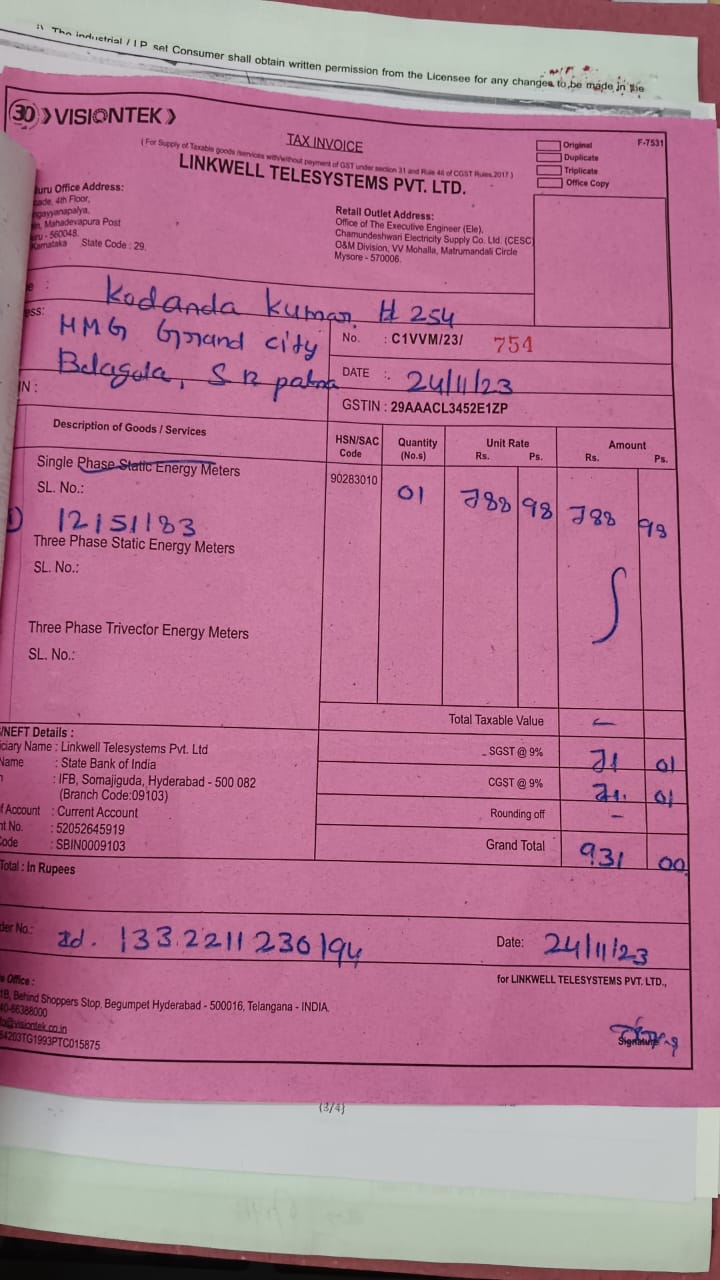 The industrial / I.P. set Consumer shall obtain written permission from the Licensee for any changes to be made in the
30 VISIONTEK
TAX INVOICE
F-7531
(For Supply of Taxable goods /services with/without payment of GST under section 31 and Rule 46 of CGST Rules,2017)
LINKWELL TELESYSTEMS PVT. LTD.
Original
Duplicate
Triplicate
Office Copy
uru Office Address:
4th Floor,
ngayyanapalya,
Mahadevapura Post
ru - 560048.
Karnataka State Code : 29.
Retail Outlet Address:
Office of The Executive Engineer (Ele),
Chamundeshwari Electricity Supply Co. Ltd. (CESC)
O&M Division, VV Mohalla, Matrumandali Circle
Mysore - 570006.
e : Kodanda Kumar. H 254
ess: HMG Grand city
Belagola, S R patna
No. : C1VVM/23/ 754
DATE : 24/11/23
IN :
GSTIN : 29AAACL3452E1ZP
Description of Goods / Services
HSN/SAC Code
Quantity (No.s)
Unit Rate Rs. Ps.
Amount Rs. Ps.
Single Phase Static Energy Meters
SL. No.:
90283010 01 788 98 788 98
1) 12151183
Three Phase Static Energy Meters
SL. No.:
Three Phase Trivector Energy Meters
SL. No.:
Total Taxable Value -
SGST @ 9% 71 01
CGST @ 9% 71. 01
Rounding off -
Grand Total 931 00
/NEFT Details :
ciary Name : Linkwell Telesystems Pvt. Ltd
Name : State Bank of India
h : IFB, Somajiguda, Hyderabad - 500 082
(Branch Code:09103)
f Account : Current Account
nt No. : 52052645919
Code : SBIN0009103
Total : In Rupees
der No.: Id. 133.2211230194
Date: 24/11/23
for LINKWELL TELESYSTEMS PVT. LTD.,
s Office :
1B, Behind Shoppers Stop, Begumpet Hyderabad - 500016, Telangana - INDIA.
40-66388000
fo@visiontek.co.in
64203TG1993PTC015875
Signature
(3/4)